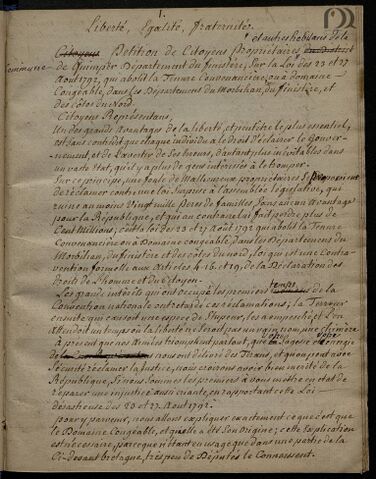 1.
Liberté, Egalité, fraternité.
et autres habitans de la
Petition de Citoyens Proprietaires
Commune de Quimper Département du finistère, Sur la Loi des 23 et 27
Aout 1792, qui abolit la Tenure Convenancière ou à domaine
Congéable, dans les Départemens du Morbihan, du finistère, et
des Côtes du Nord.
Citoyens Représentans,
Un des grands avantages de la liberté, et peut être le plus essentiel,
est sans contredit que chaque individu a le droit d'éclairer le Gouver-
nement, et de l'avertir de ses erreurs, d'autant plus inévitables dans
un vaste Etat, qu'il y a plus de gens intéressés à le tromper.
Sur ce principe, une foule de Malheureux propriétaires
de réclamer contre une loi Surprise à l'assemblée législative, qui
ruine au moins Vingt mille Peres de familles, Sans aucun avantage
pour la République, et qui au contraire lui fait perdre plus de
Cent Millions; c'est la loi des 23 et 27 aout 1792 qui abolit la Tenure
Convenancière ou à Domaine congéable, dans les Departemens du
Morbihan, du finistère et des côtes du nord, loi qui est une Contra-
vention formelle aux Articles 4. 16. et 19. de la Déclaration des
Droits de l'homme et du Citoyen.
Les grands intérêts qui ont occupé les premiers temps de la
Convention nationale ont retardé ces réclamations; la Terreur
ensuite qui causoit une espece de Stupeur, les a empeché, et l'on
attendoit un temps où la liberté ne seroit pas un vain nom, une chimère
à present que nos Armées triomphent partout, que votre Sagesse et votre énergie
nous ont délivré des Tirans, et qu'on peut avec
Sécurité réclamer la Justice, nous croirons avoir bien mérité de la
République, Si nous Sommes les premiers à vous mettre en état de
réparer une injustice aussi criante, en rapportant cette Loi
désastreuse des 23 et 27. Aout 1792.
pour y parvenir, nous allons expliquer exactement ce que c'est que
le Domaine Congéable, et quelle a été Son Origine; cette Explication
est nécessaire, parce que n'étant en usage que dans une partie de la
Ci-devant bretagne, très peu de Députés le Connoissent.